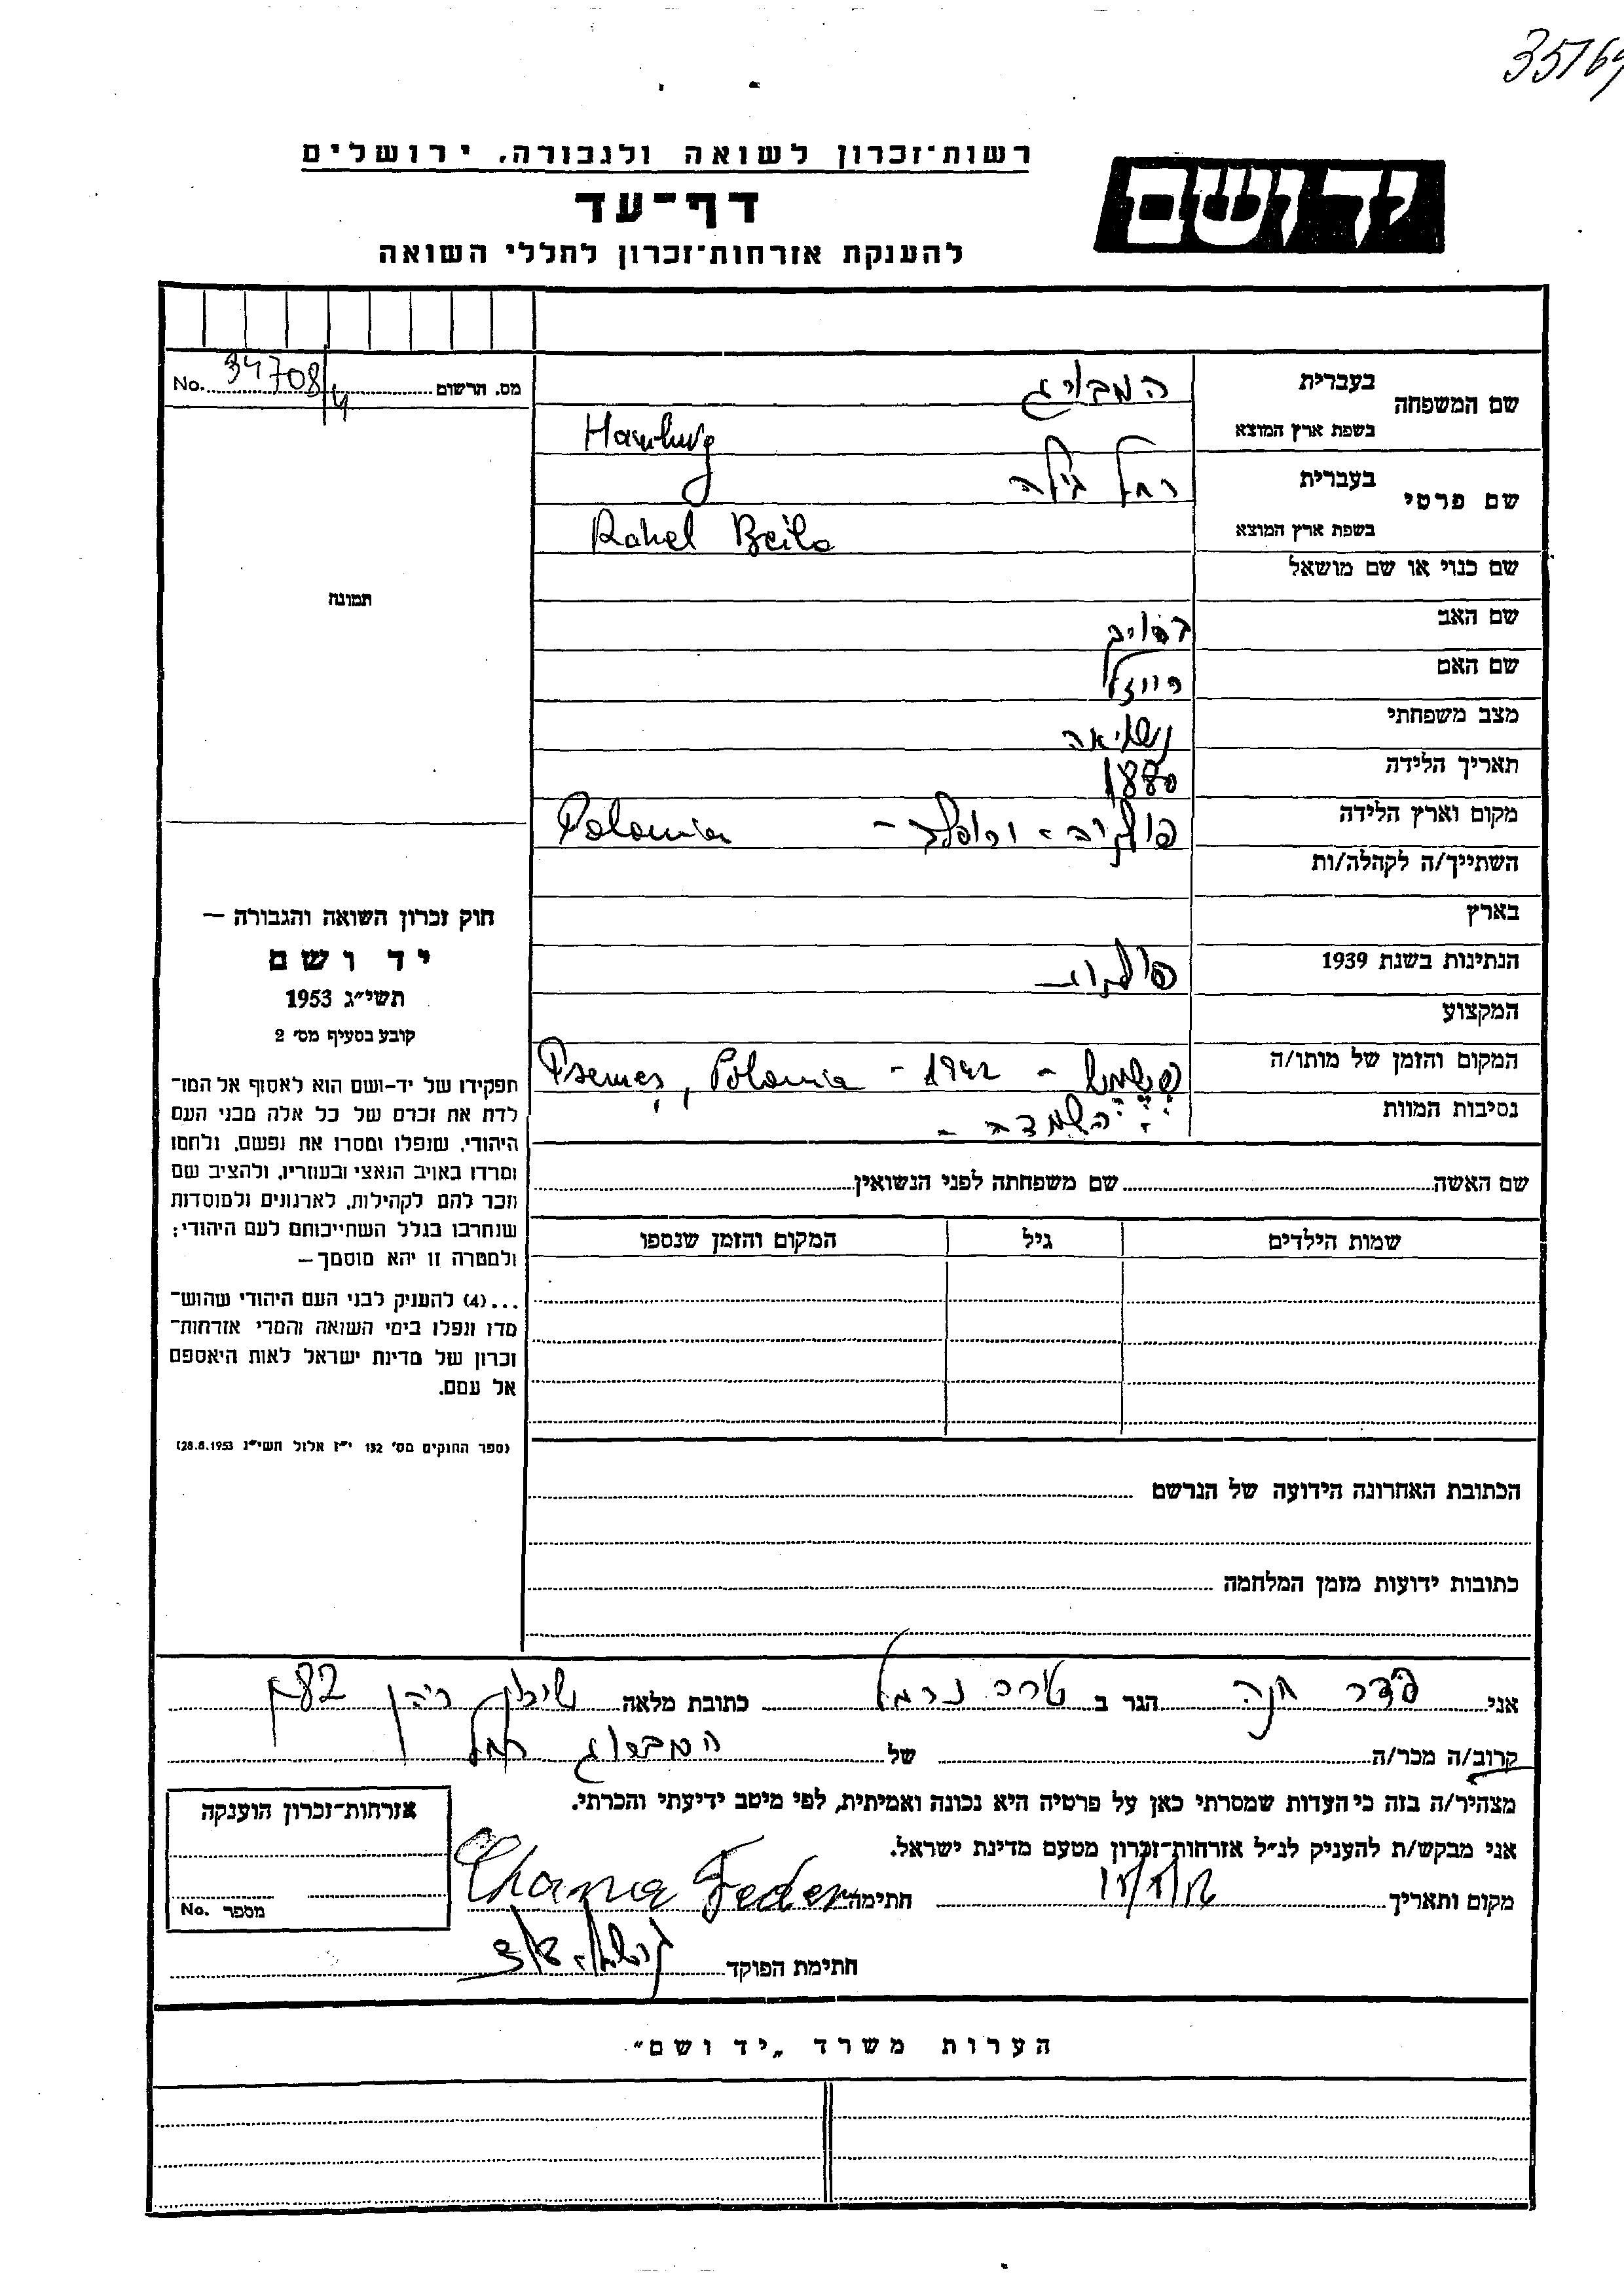 רשות־זכרון לשואה ולגבורה, ירושלים
יד ושם
דף־עד
להענקת אזרחות־זכרון לחללי השואה
No. 34708/4 מס. הרשום
שם המשפחה בעברית המבורג
בשפת ארץ המוצא Hamburg
שם פרטי בעברית רחל ביילה
בשפת ארץ המוצא Rahel Beila
שם כנוי או שם מושאל
שם האב
שם האם רייזל
מצב משפחתי נשואה
תאריך הלידה 1880
מקום וארץ הלידה פולניה - Polonia
השתייך/ה לקהלה/ות
בארץ
הנתינות בשנת 1939 פולנית
המקצוע
המקום והזמן של מותו/ה - 1942 - Polonia
נסיבות המוות השמדה -
תמונה
חוק זכרון השואה והגבורה —
יד ושם
תשי״ג 1953
קובע בסעיף מס׳ 2
תפקידו של יד-ושם הוא לאסוף אל המו־
לדת את זכרם של כל אלה מבני העם
היהודי, שנפלו ומסרו את נפשם, נלחמו
ומרדו באויב הנאצי ובעוזריו, ולהציב שם
וזכר להם לקהילות, לארגונים ולמוסדות
שנחרבו בגלל השתייכותם לעם היהודי;
ולמטרה זו יהא מוסמך —
...(4) להעניק לבני העם היהודי שהוש־
מדו ונפלו בימי השואה והמרי אזרחות־
זכרון של מדינת ישראל לאות היאספם
אל עמם.
(ספר החוקים מס׳ 132 י״ז אלול תשי״ג 28.8.1953)
שם האשה שם משפחתה לפני הנשואין
שמות הילדים גיל המקום והזמן שנספו
הכתובת האחרונה הידועה של הנרשם
כתובות ידועות מזמן המלחמה
אני פדר חנה הגר ב כתובת מלאה שיכון
קרוב/ה מכר/ה של המבורג רחל
מצהיר/ה בזה כי העדות שמסרתי כאן על פרטיה היא נכונה ואמיתית, לפי מיטב ידיעתי והכרתי.
אני מבקש/ת להעניק לנ״ל אזרחות־זכרון מטעם מדינת ישראל.
מקום ותאריך חתימה Chana Feder
חתימת הפוקד
אזרחות־זכרון הוענקה
No. מספר
הערות משרד „יד ושם״